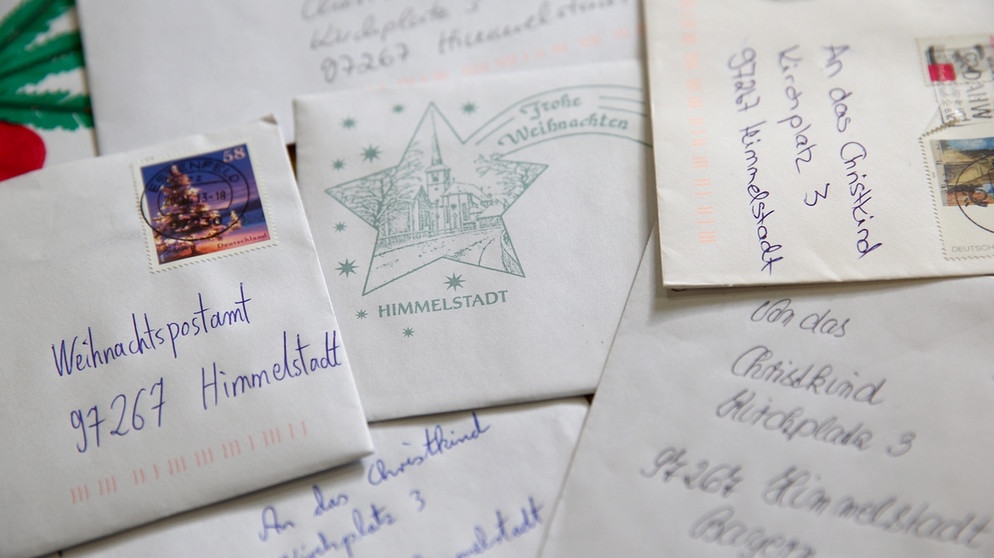 Kirchplatz 3
97267 Himmelstadt
58
Deutschland
Weihnachtspostamt
97267 Himmelstadt
Frohe
Weihnachten
HIMMELSTADT
An das Christkind
Kirchplatz 3
97267 Himmelstadt
DAHW
DEUTSCH
An das Christkind
Kirchplatz 3
An das
Christkind
Kirchplatz 3
97267 Himmelstadt
Bayern